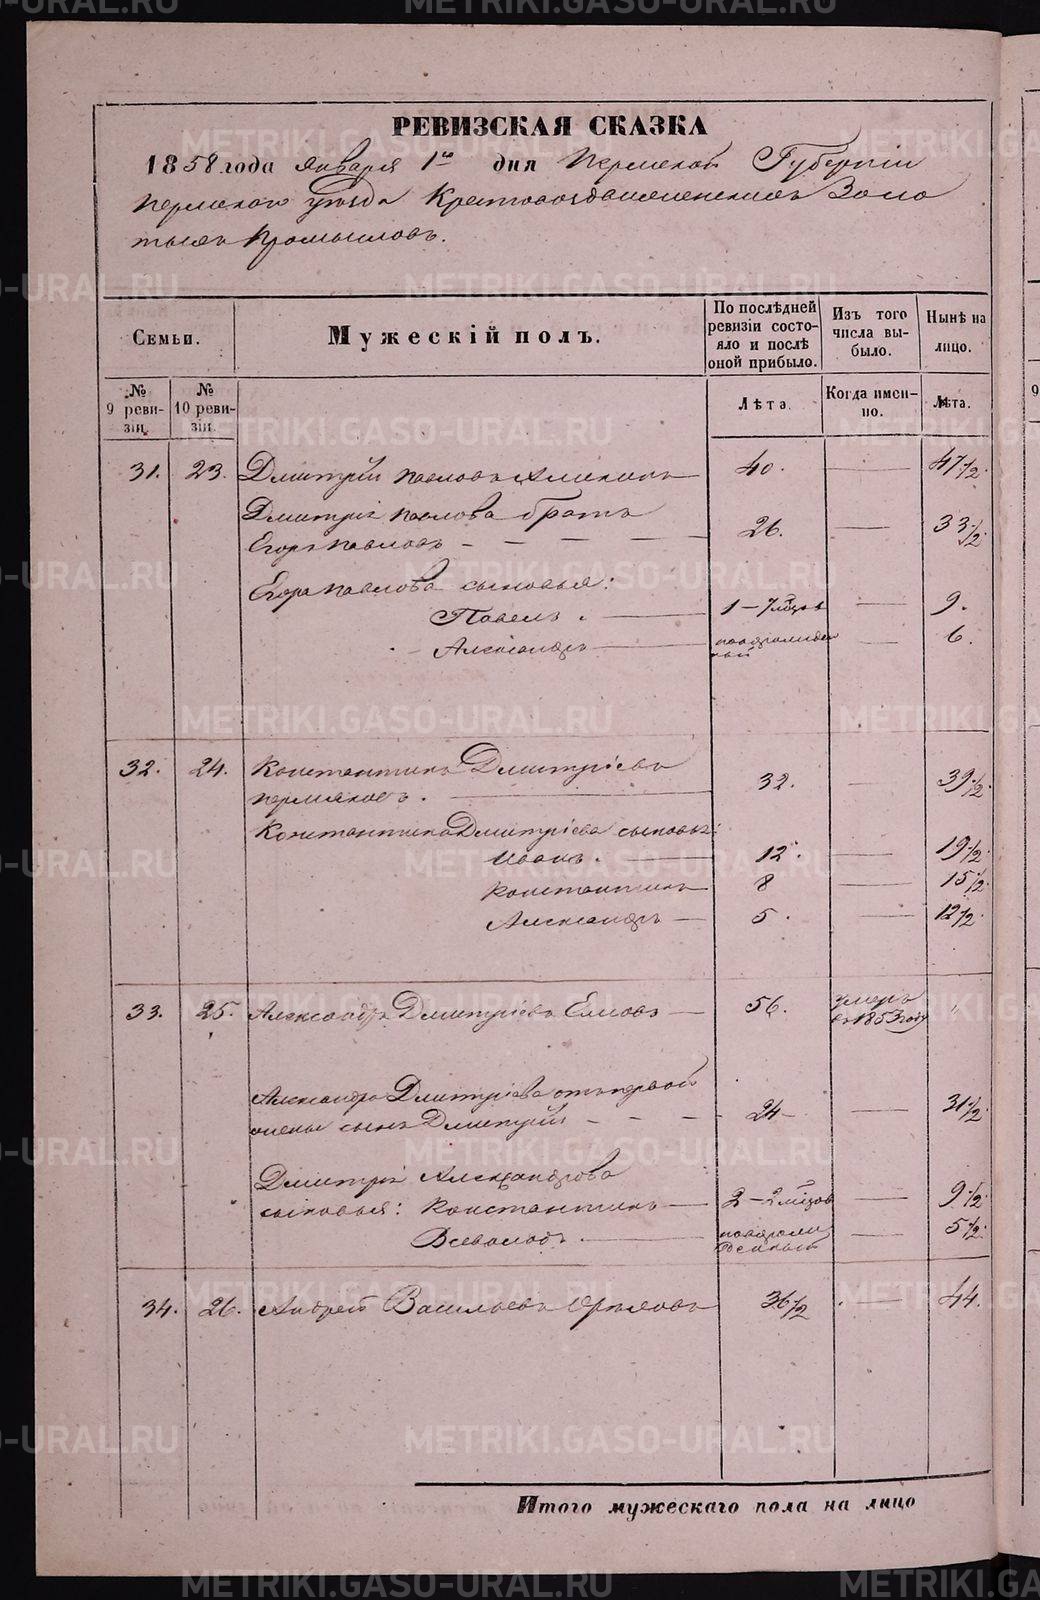 РЕВИЗСКАЯ СКАЗКА
1858 года Января 1го дня Пермской Губернiи
Пермского уѣзда Крестовоздвиженскихъ Золо
тыхъ Промысловъ.
Семьи.
Мужескiй полъ.
По послѣдней ревизiи состо-
яло и послѣ оной прибыло.
Изъ того числа вы-
было.
Нынѣ на лицо.
№ 9 реви-
зiи.
№ 10 реви-
зiи.
Лѣта.
Когда имен-
но.
Лѣта.
31. 23. Дмитрiй Павловъ 40. 47½.
Дмитрiя Павлова братъ
Егоръ Павловъ 26. 33½.
Егора Павлова сыновья:
Павелъ 1–7 мѣцовъ 9.
Александръ новорожден
ный 6.
32. 24. Константинъ Дмитрiевъ
Пермяковъ. 32. 39½.
Константина Дмитрiева сыновья:
Иванъ. 12. 19½.
Константинъ 8 15½.
Александръ 5. 12½.
33. 25. Александръ Дмитрiевъ 56. умеръ
въ 1853 году
Александра Дмитрiева отъ первой
жены сынъ Дмитрiй 24 31½.
Дмитрiя Александрова
сыновья: Константинъ 2–2 мѣцов 9½.
Всеволодъ новорож
денный 5½.
34. 26. Андрей Васильевъ 36½ 44.
Итого мужескаго пола на лицо
METRIKI.GASO-URAL.RU